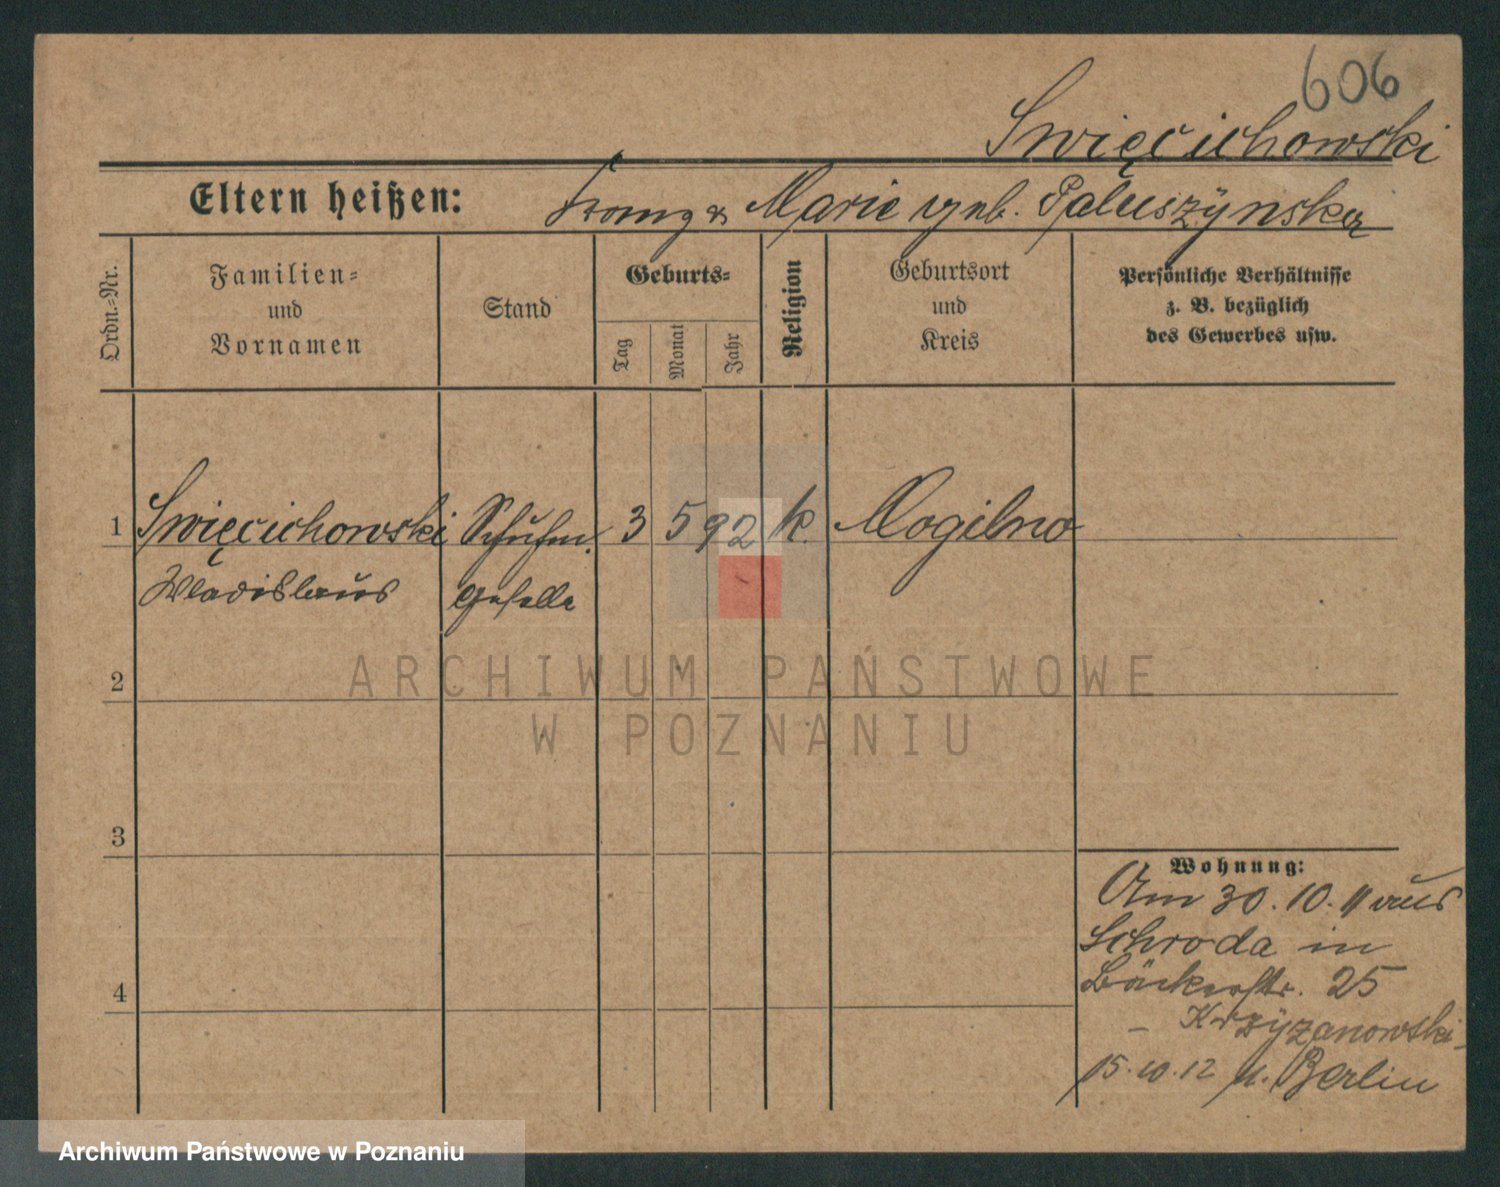 606
Święcichowski
Eltern heißen: Franz & Marie geb. Paluszÿnska
Ordn.-Nr.
Familien-
und
Vornamen
Stand
Geburts-
Tag
Monat
Jahr
Religion
Geburtsort
und
Kreis
Persönliche Verhältnisse
z. B. bezüglich
des Gewerbes usw.
1 Święcichowski Schuhm. 3 5 92 k. Mogilno
Wladislaus geselle
2
ARCHIWUM PAŃSTWOWE
W POZNANIU
3
Wohnung:
Am 30.10.11 aus
Schroda in
Bäckerstr. 25
4
– Krzÿzanowski –
15.10.12 n. Berlin
Archiwum Państwowe w Poznaniu